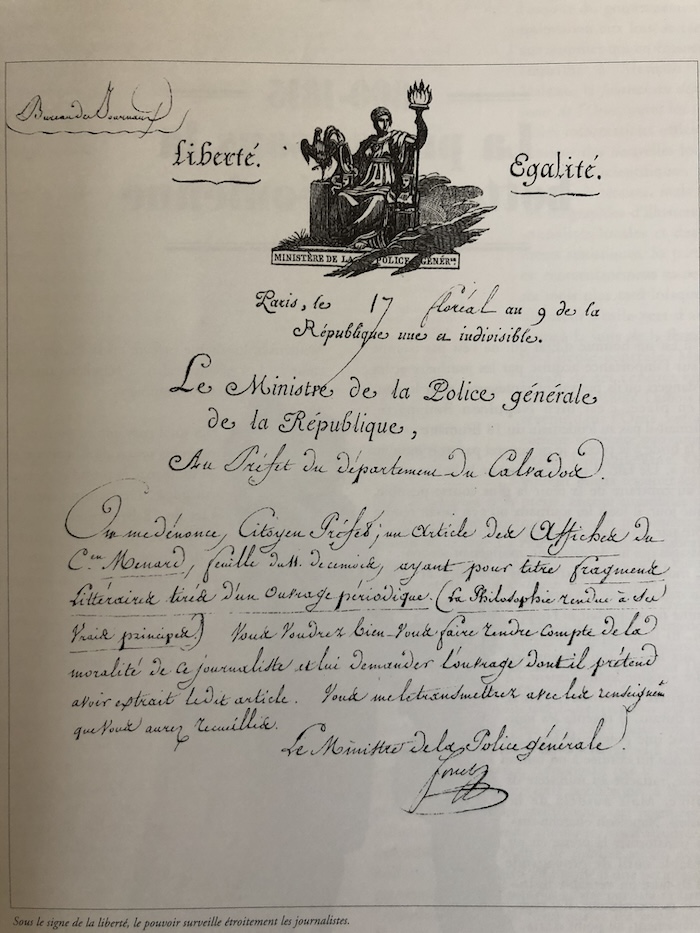 Bureau des Journaux
Liberté. Egalité.
MINISTÈRE DE LA POLICE GÉNÉR.ˡᵉ
Paris, le 17 floréal an 9 de la
République une et indivisible.
Le Ministre de la Police générale
de la République,
Au Préfet du département du Calvados.
On me dénonce, Citoyen Préfet; un Article des Affiches du
C.en Menard, feuille du 11. de ce mois, ayant pour titre fragmens
Littéraires tirés d'un ouvrage périodique. (La Philosophie rendue à ses
vrais principes) Vous voudrez bien-vous faire rendre compte de la
moralité de ce journaliste et lui demander l'ouvrage dont il prétend
avoir extrait ledit article. Vous me le transmettrez avec les renseignem
que vous aurez recueillis.
Le Ministre de la Police générale.
Sous le signe de la liberté, le pouvoir surveille étroitement les journalistes.